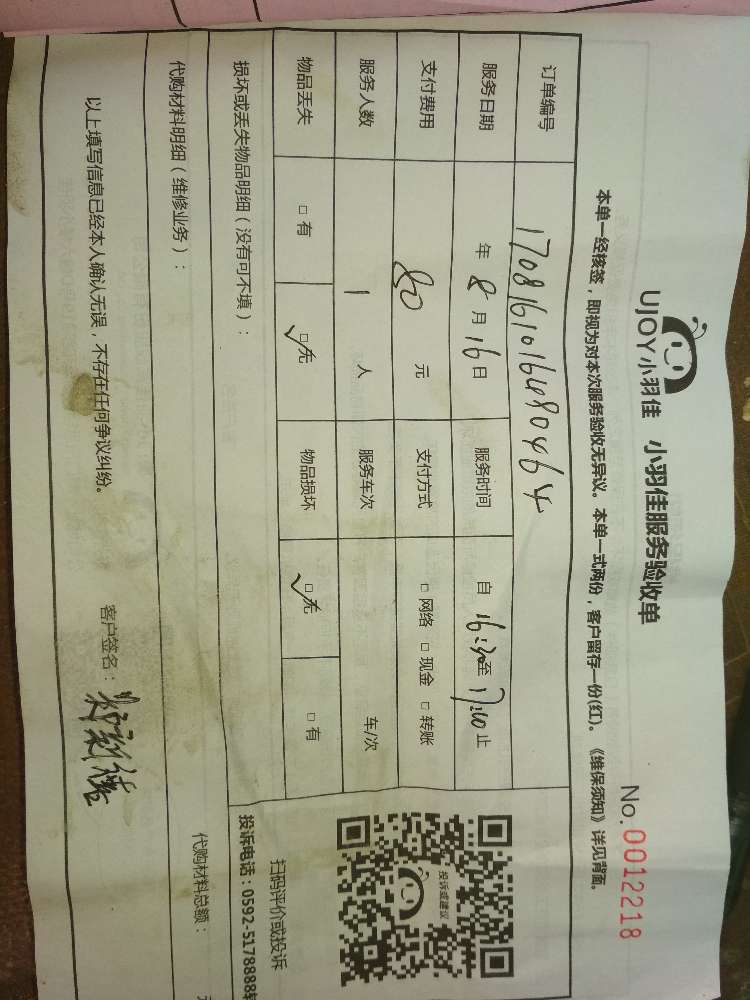 UJOY小羽佳 小羽佳服务验收单
No.0012218
本单一经核签，即视为对本次服务验收无异议。本单一式两份，客户留存一份(红)。《维保须知》详见背面。
订单编号 1708161016480464
服务日期 年 8 月 16 日 服务时间 自 16:30 至 17:00 止
支付费用 80 元 支付方式 □网络 □现金 □转账
服务人数 1 人 服务车次 车/次
物品丢失 □有 □无 物品损坏 □无 □有
损坏或丢失物品明细（没有可不填）：
投诉或建议
扫码评价或投诉
投诉电话：0592-5178888转
代购材料明细（维修业务）：
代购材料总额：
以上填写信息已经本人确认无误，不存在任何争议纠纷。
客户签名：